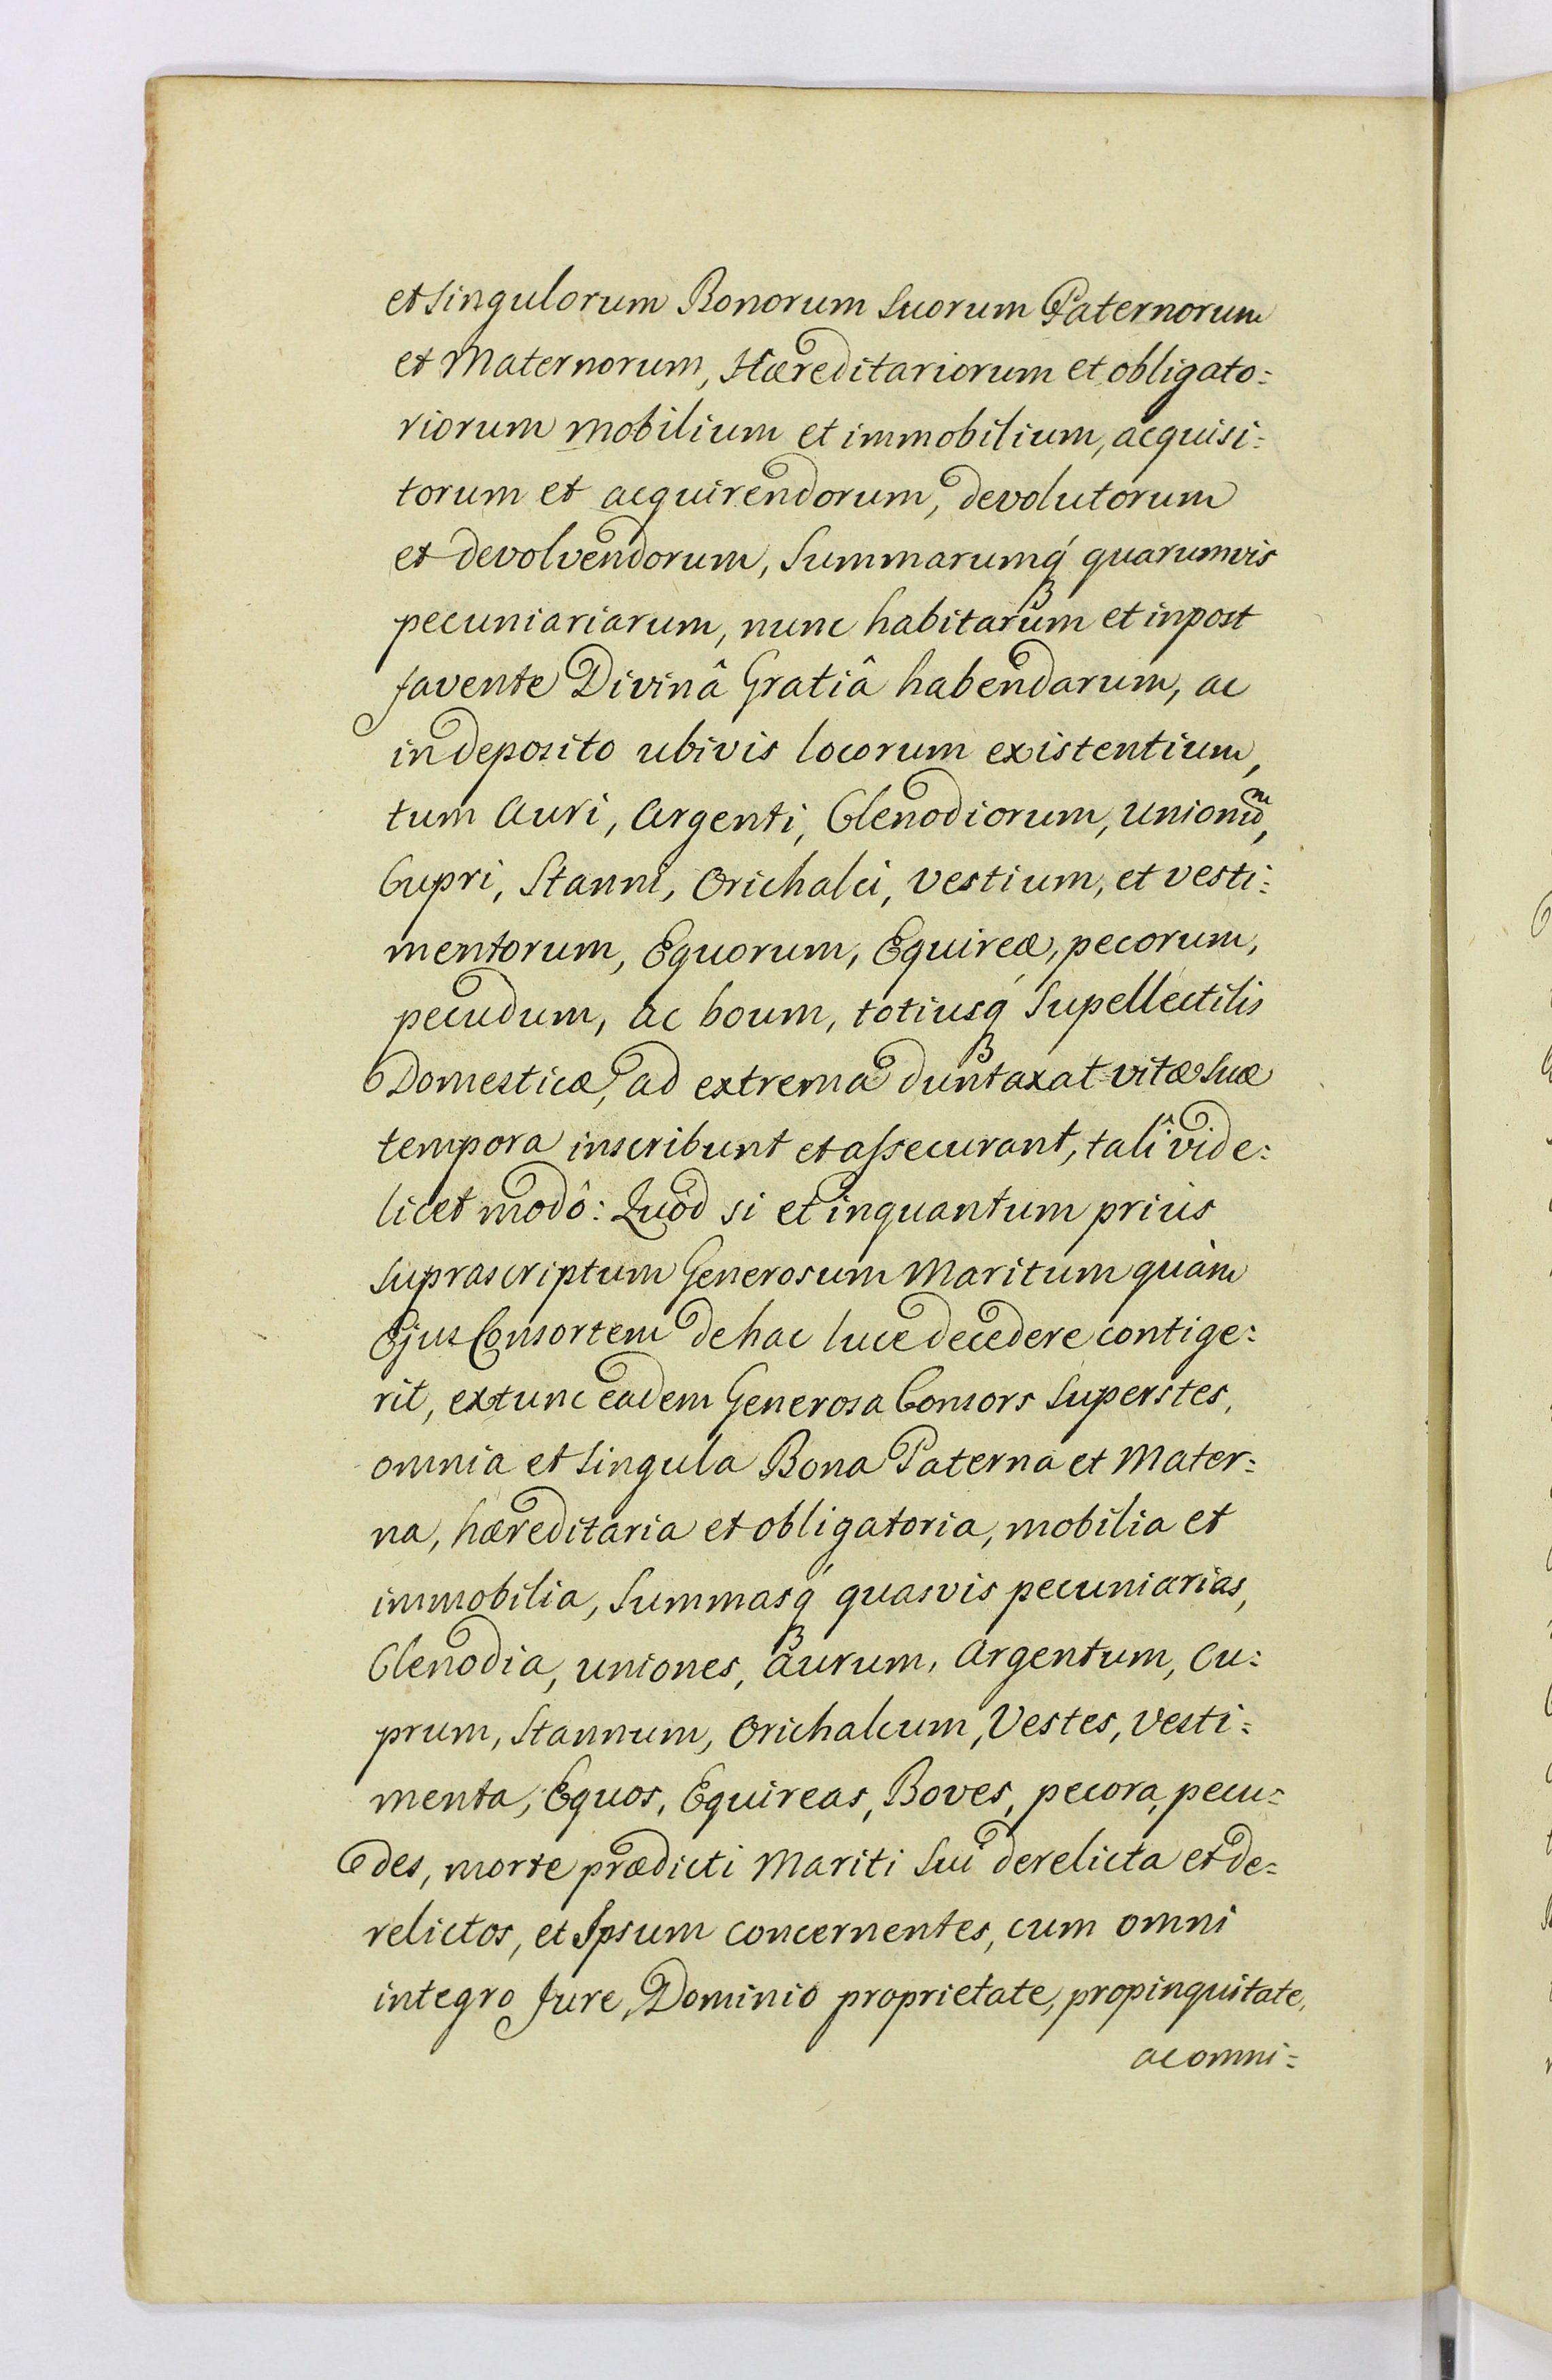 et singulorum Bonorum Suorum Paternorum
et Maternorum, Hæreditariorum et obligato=
riorum mobilium et immobilium, acquisi=
torum et acquirendorum, devolutorum
et devolvendorum, Summarumq́ quarumvis
pecuniariarum, nunc habitarum et inpost
favente Divinâ Gratiâ habendarum, ac
in deposito ubivis locorum existentium,
tum Auri, Argenti, Clenodiorum, Unionum,
Cupri, Stanni, Orichalci, vestium, et vesti=
mentorum, Equorum, Equireæ, pecorum,
pecudum, ac boum, totiusq́ Supellectilis
Domesticæ, ad extrema duntaxat vitæ Suæ
tempora inscribunt et assecurant, tali vide=
licet modô: Quòd si et inquantum priùs
Suprascriptum Generosum Maritum quàm
Ejus Consortem de hac luce decedere contige=
rit, extunc eadem Generosa Consors Superstes,
omnia et Singula Bona Paterna et Mater=
na, hæreditaria et obligatoria, mobilia et
immobilia, Summasq́ quasvis pecuniarias,
Clenodia, uniones, aurum, Argentum, Cu=
prum, Stannum, Orichalcum, Vestes, Vesti=
menta, Equos, Equireas, Boves, pecora, pecu=
des, morte prædicti Mariti Sui derelicta et de=
relictos, et Ipsum concernentes, cum omni
integro Jure, Dominio proprietate, propinquitate,
ac omni=